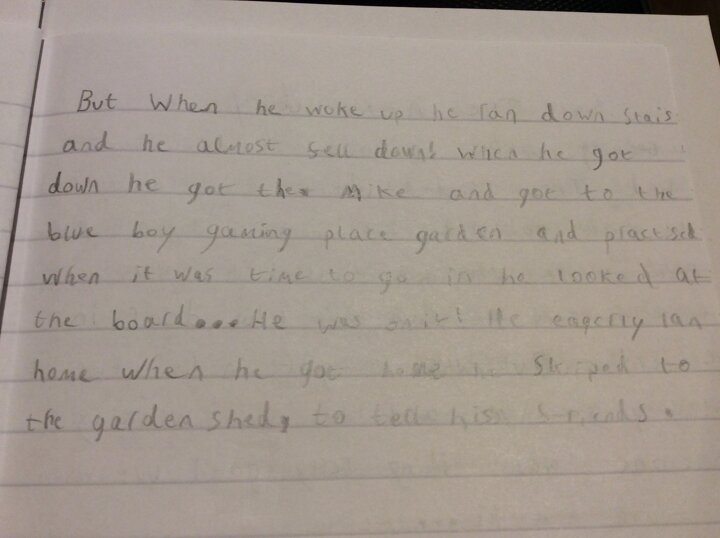 But When he woke up he ran down stais
and he almost fell down! when he got
down he got the Mike and got to the
blue boy gaming place garden and practised
when it was time to go in he looked at
the board... He was on it! He eagerly ran
home when he got home he Skiped to
the garden shed, to tell his friends.